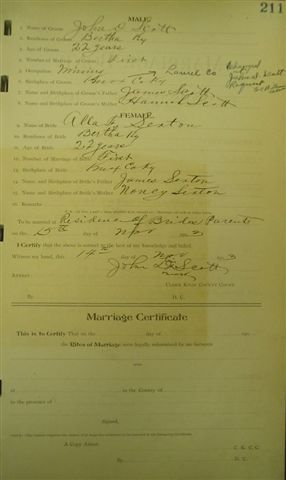 211
MALE
1. Name of Groom John D Scott
2. Residence of Groom Bertha Ky
3. Age of Groom 22 years
4. Number of Marriage of Groom First
5. Occupation Mining
6. Birthplace of Groom Knox Co Ky
Laurel Co
7. Name and Birthplace of Groom's Father James Scott
8. Name and Birthplace of Groom's Mother Hannah Scott
John D. Scott
FEMALE
9. Name of Bride Sexton
10. Residence of Bride Bertha Ky
11. Age of Bride 22 years
12. Number of Marriage of Bride First
13. Birthplace of Bride Knox Co Ky
14. Name and Birthplace of Bride's Father James Sexton
15. Name and Birthplace of Bride's Mother Nancy Sexton
16. Remarks
To be married at Residence of Brides Parents
on the 15th day of Nov 3
I Certify that the above is correct to the best of my knowledge and belief.
Witness my hand, this 14th day of Nov 3
John D Scott
Attest: mark
Clerk Knox County Court
By D. C.
Marriage Certificate
This is to Certify That on the day of
the Rites of Marriage were legally solemnized by me between
and
at in the County of
in the presence of
Signed,
A Copy Attest: C. K. C. C.
By D. C.